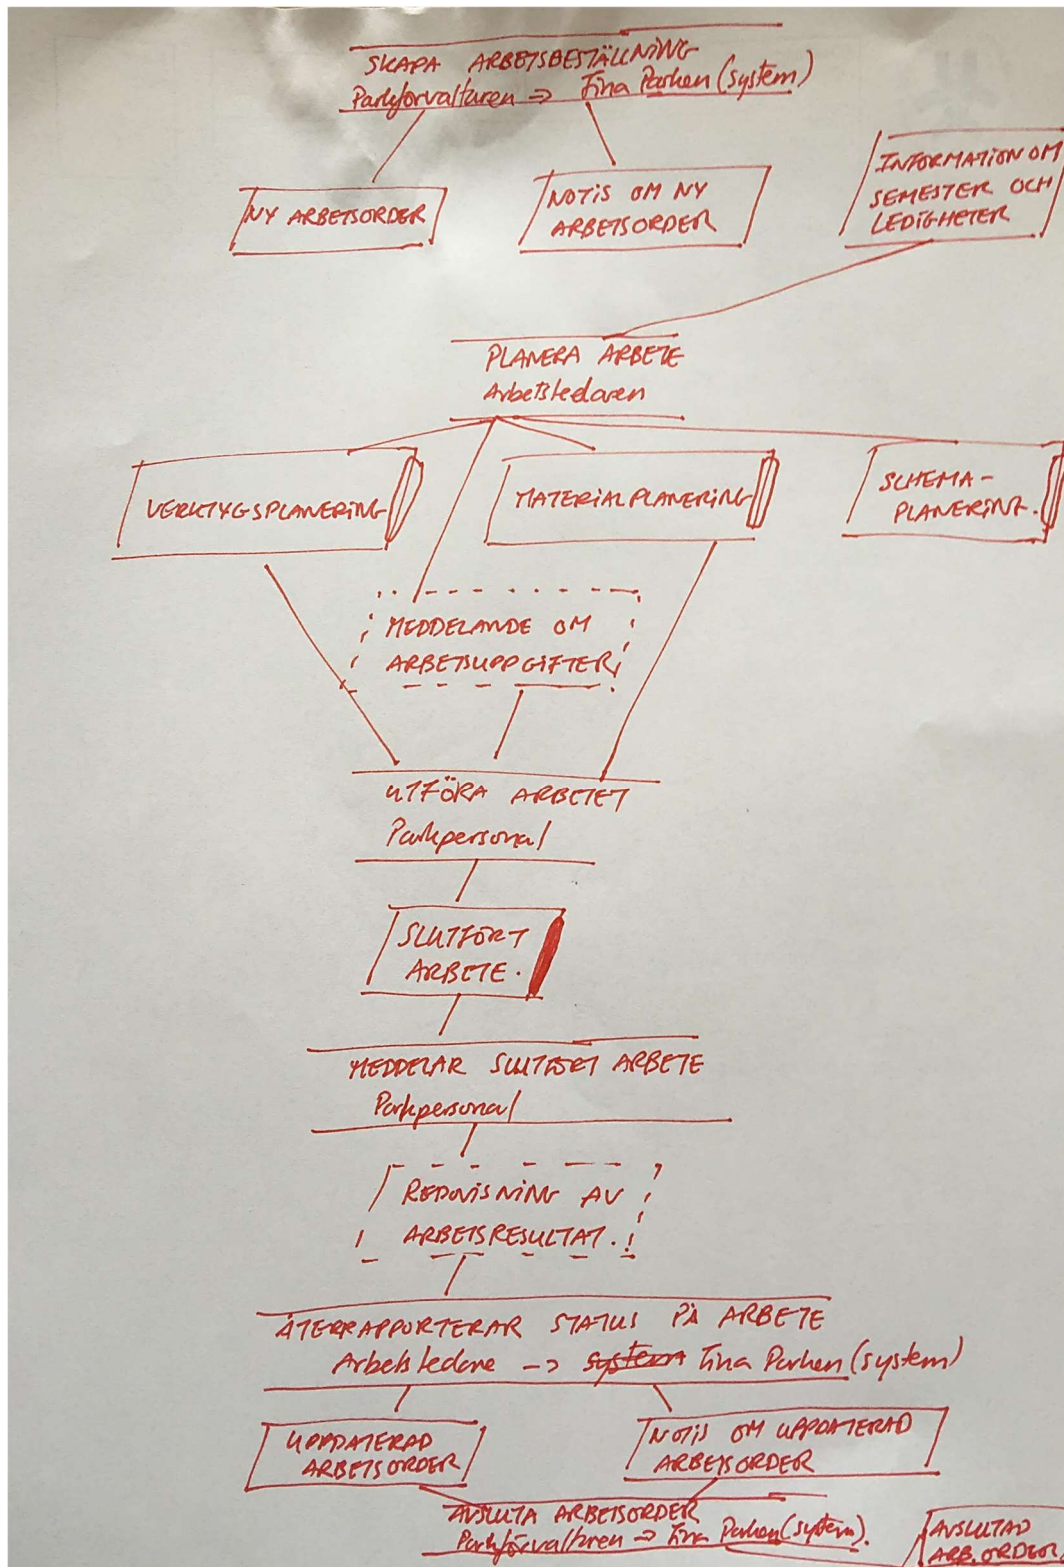 SKAPA ARBETSBESTÄLLNING
Parkförvaltaren => Fina Parken (system)
NY ARBETSORDER
NOTIS OM NY
ARBETSORDER
INFORMATION OM
SEMESTER OCH
LEDIGHETER
PLANERA ARBETE
Arbetsledaren
VERKTYGSPLANERING
MATERIALPLANERING
SCHEMA-
PLANERING.
MEDDELANDE OM
ARBETSUPPGIFTER
UTFÖRA ARBETET
Parkpersonal
SLUTFÖRT
ARBETE.
MEDDELAR SLUTFÖRT ARBETE
Parkpersonal
REDOVISNING AV
ARBETSRESULTAT.
ÅTERRAPPORTERAR STATUS PÅ ARBETE
Arbetsledare -> system Fina Parken (system)
UPPDATERAD
ARBETSORDER
NOTIS OM UPPDATERAD
ARBETSORDER
AVSLUTA ARBETSORDER
Parkförvaltaren => Fina Parken (system).
AVSLUTAD
ARB. ORDER